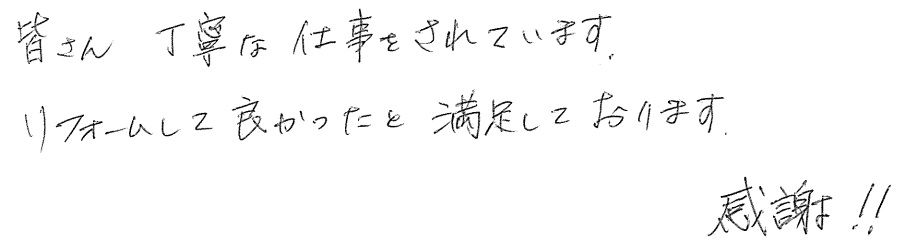 皆さん 丁寧な仕事をされています.
リフォームして良かったと満足しております.
感謝!!